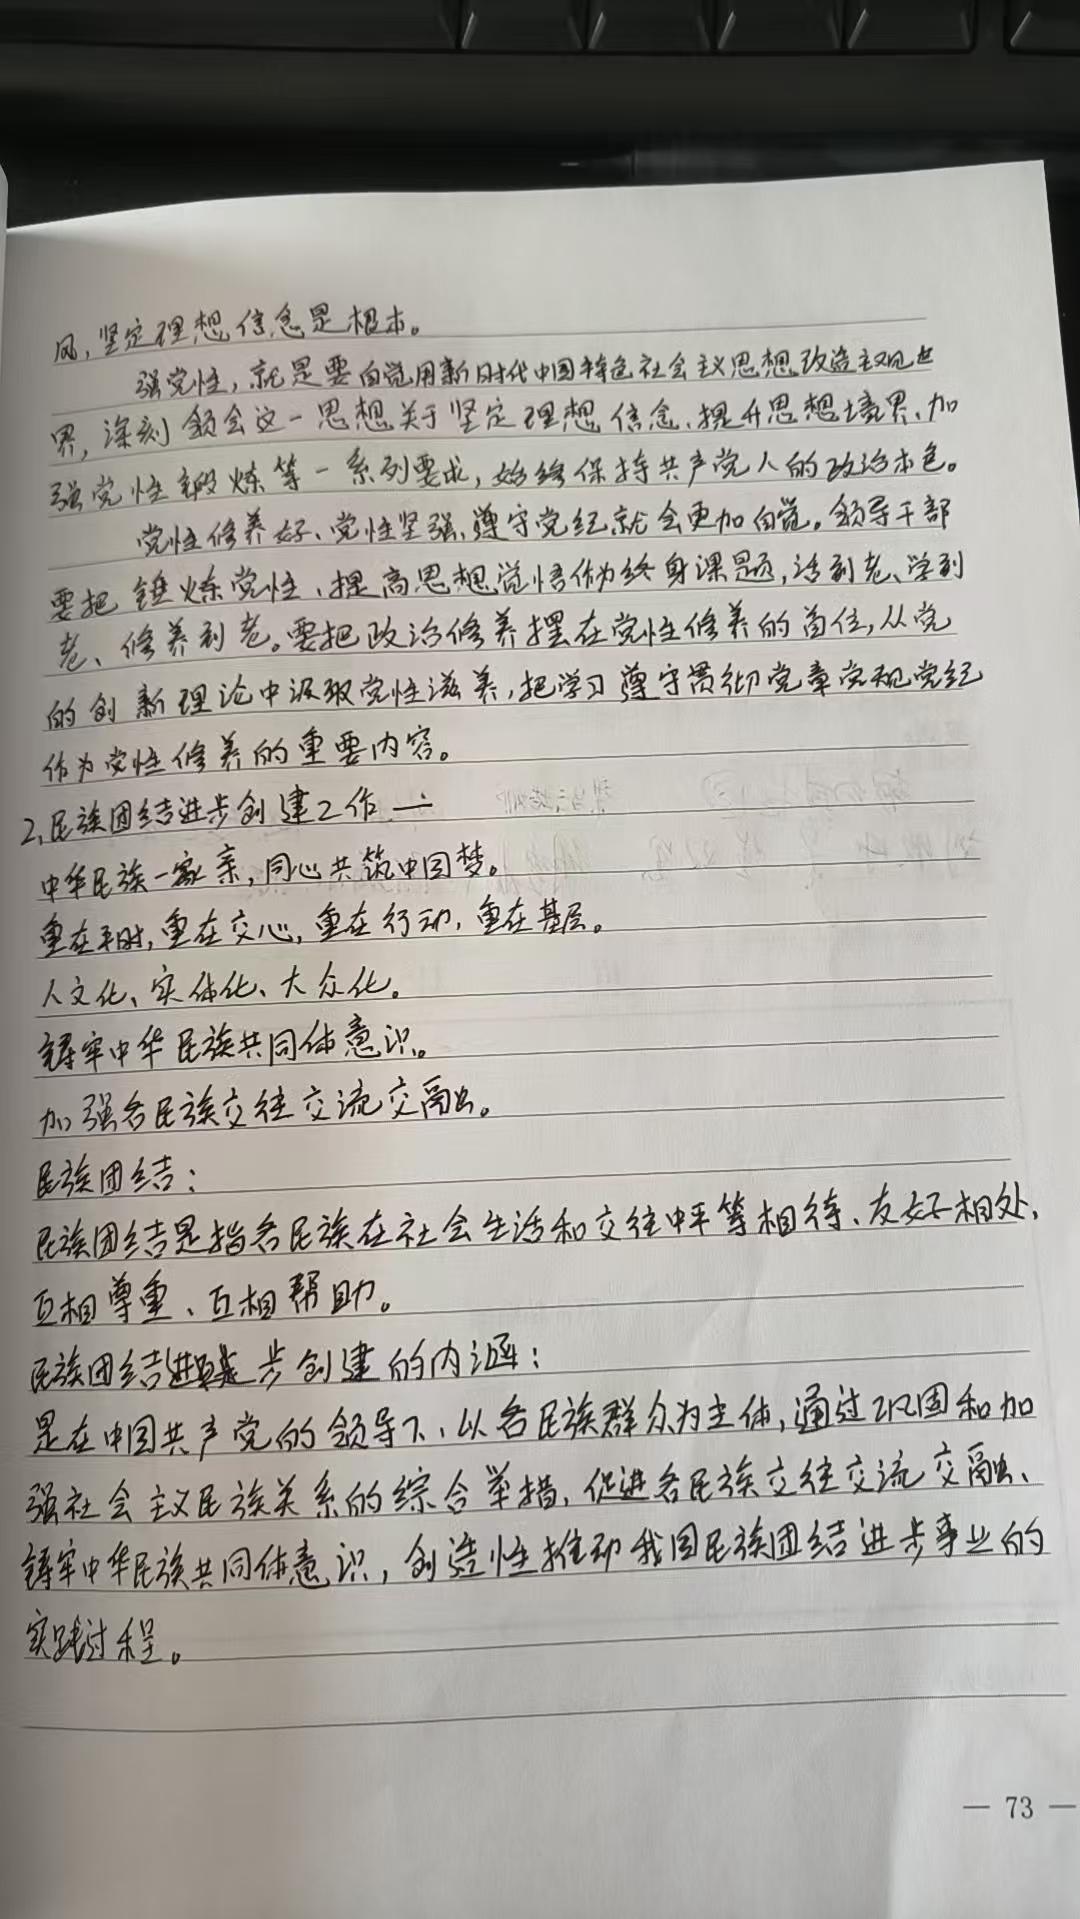 风,坚定理想信念是根本。
强党性,就是要自觉用新时代中国特色社会主义思想改造主观世
界,深刻领会这一思想关于坚定理想信念、提升思想境界、加
强党性锻炼等一系列要求,始终保持共产党人的政治本色。
党性修养好、党性坚强、遵守党纪就会更加自觉。领导干部
要把锤炼党性、提高思想觉悟作为终身课题,活到老、学到
老、修养到老。要把政治修养摆在党性修养的首位,从党
的创新理论中汲取党性滋养,把学习遵守贯彻党章党规党纪
作为党性修养的重要内容。
2、民族团结进步创建工作一
中华民族一家亲,同心共筑中国梦。
重在平时,重在交心,重在行动,重在基层。
人文化、实体化、大众化。
铸牢中华民族共同体意识。
加强各民族交往交流交融。
民族团结:
民族团结是指各民族在社会生活和交往中平等相待、友好相处、
互相尊重、互相帮助。
民族团结进步创建的内涵:
是在中国共产党的领导下、以各民族群众为主体,通过巩固和加
强社会主义民族关系的综合举措,促进各民族交往交流交融、
铸牢中华民族共同体意识,创造性推动我国民族团结进步事业的
实践过程。
— 73 —